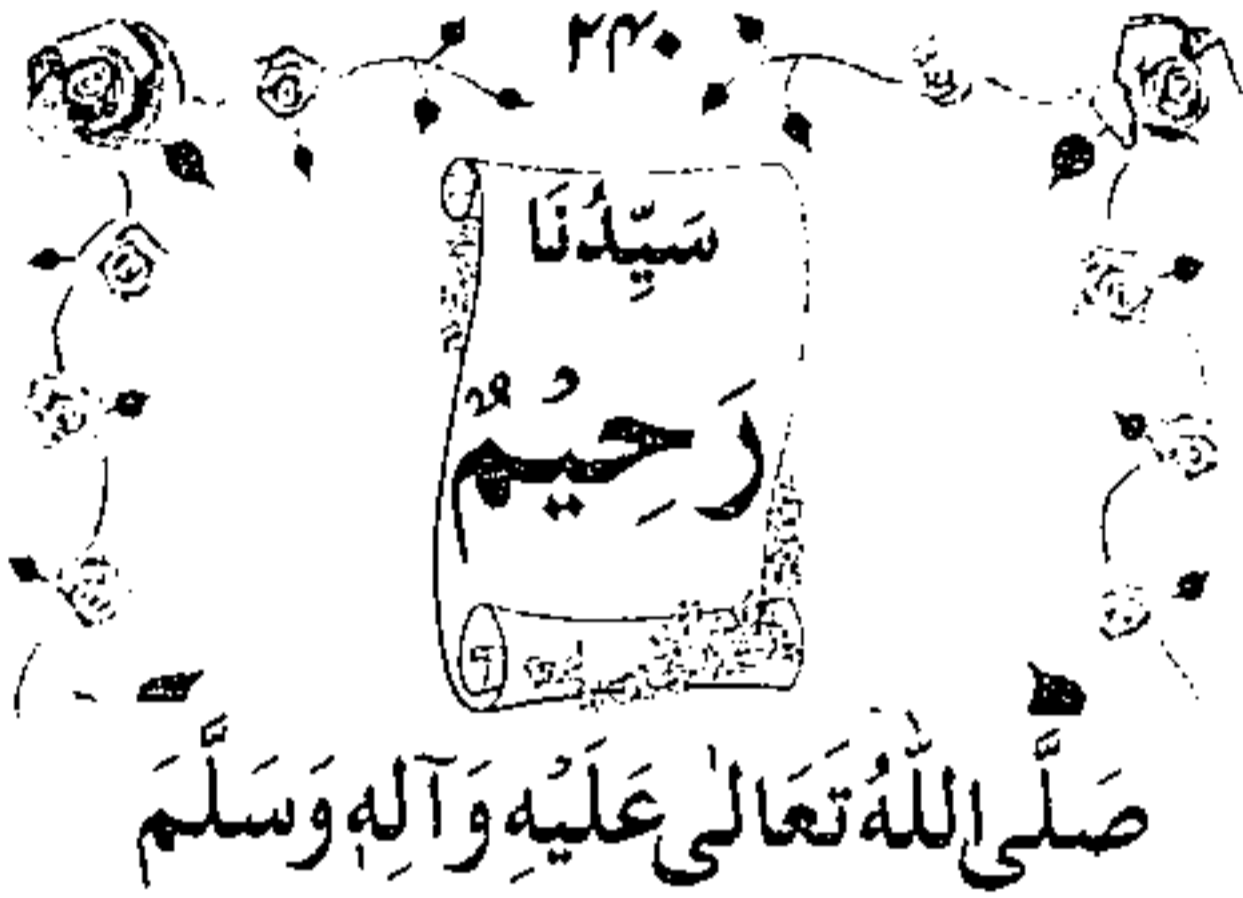 ۲۴۰
سَيِّدُنَا
رَحِيْمٌ
صَلَّى اللّٰهُ تَعَالٰى عَلَيْهِ وَآلِهٖ وَسَلَّمَ